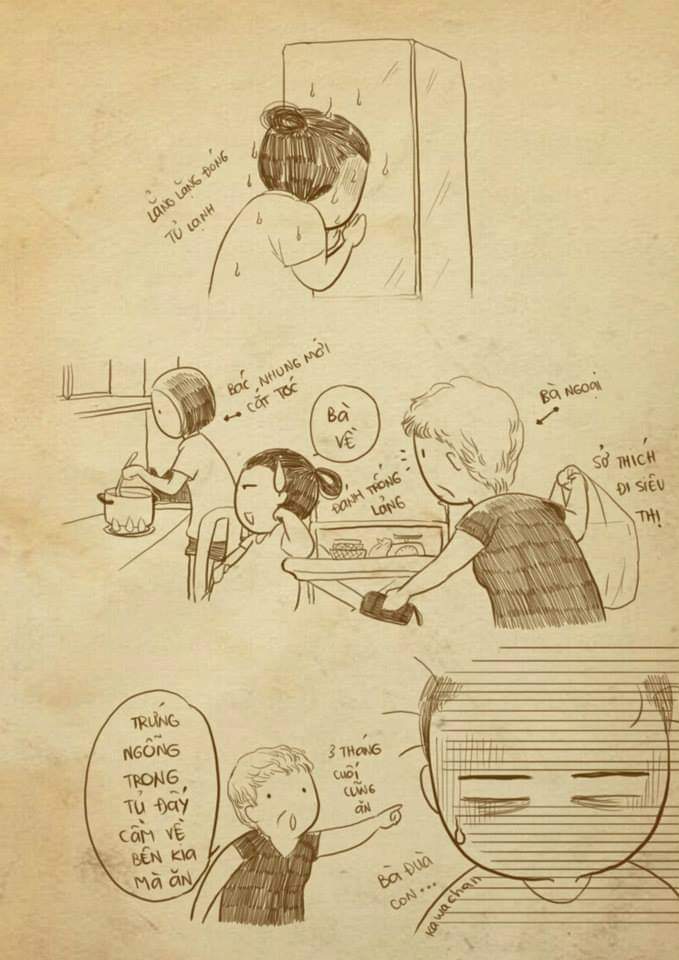 LẲNG LẶNG ĐÓNG
TỦ LẠNH
BÁC NHUNG MỚI
CẮT TÓC
BÀ
VỀ
BÀ NGOẠI
ĐÁNH TRỐNG
LẢNG
SỞ THÍCH
ĐI SIÊU
THỊ
TRỨNG
NGỖNG
TRONG
TỦ ĐẤY
CẦM VỀ
BÊN KIA
MÀ ĂN
3 THÁNG
CUỐI
CŨNG
ĂN
BÀ ĐÙA
CON...
kawachan